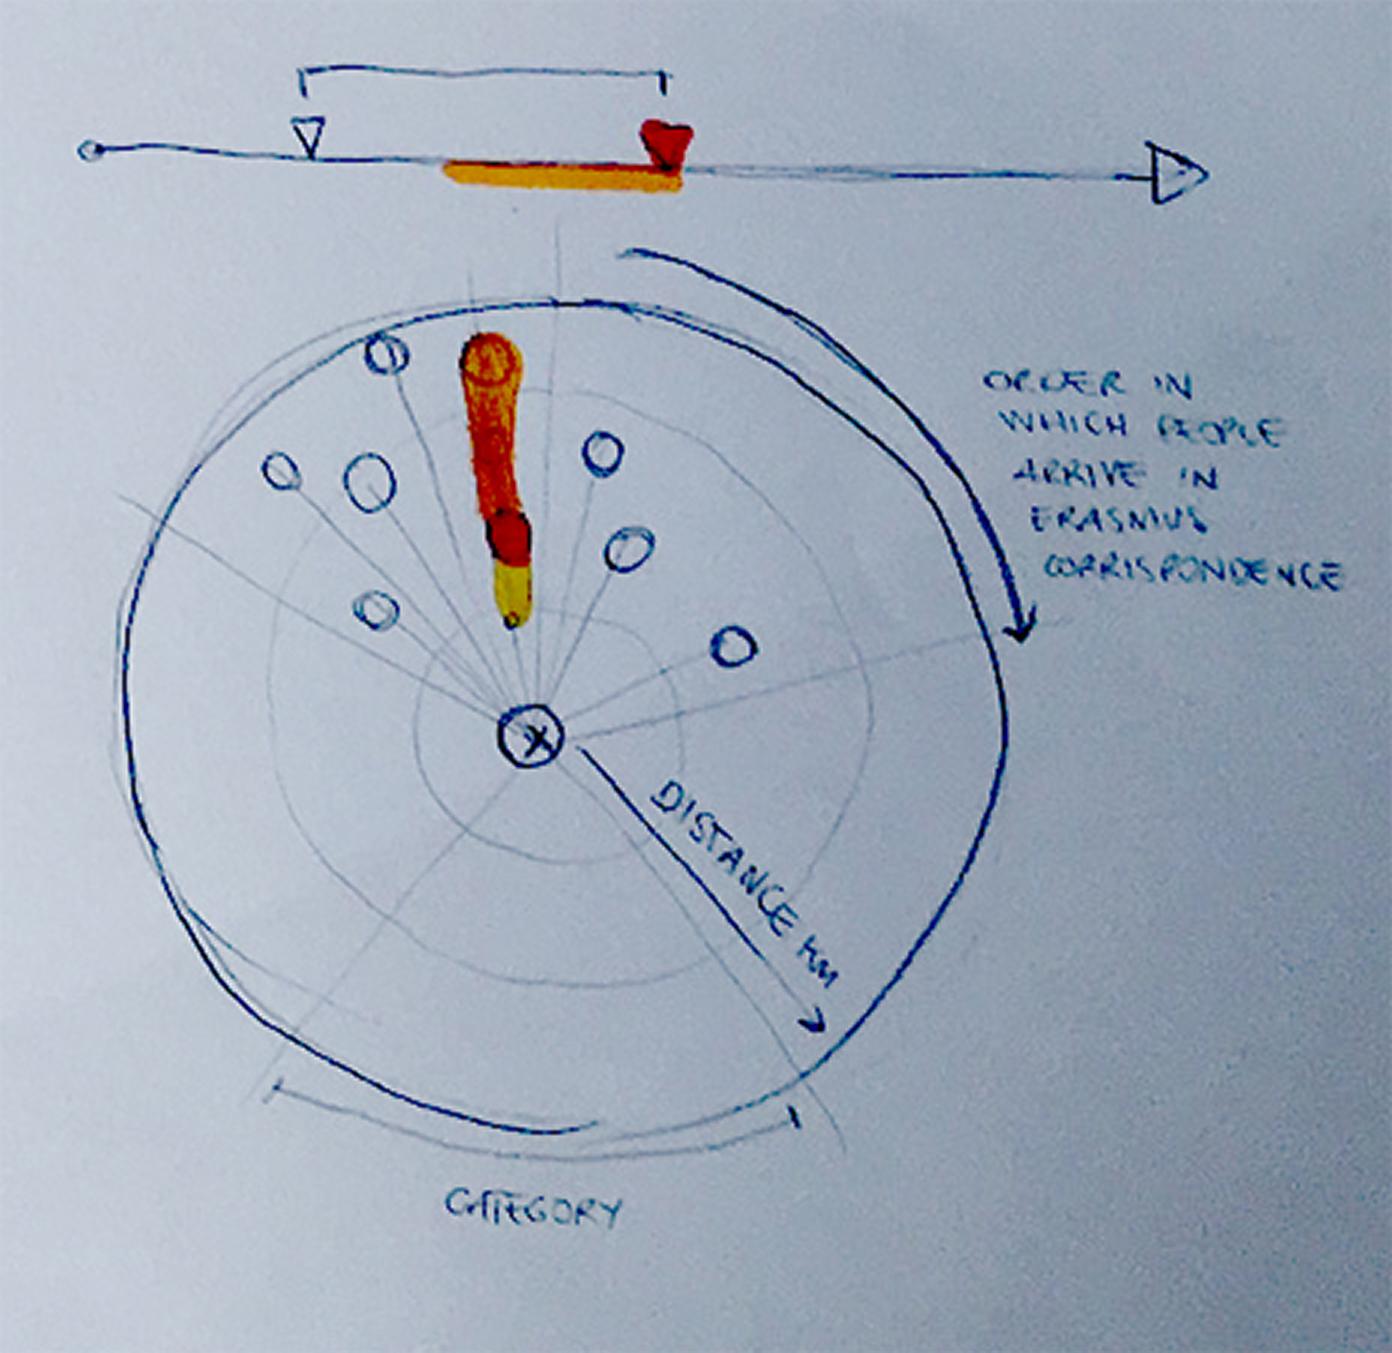 ORDER IN
WHICH PEOPLE
ARRIVE IN
ERASMUS
CORRISPONDENCE
DISTANCE KM
CATEGORY